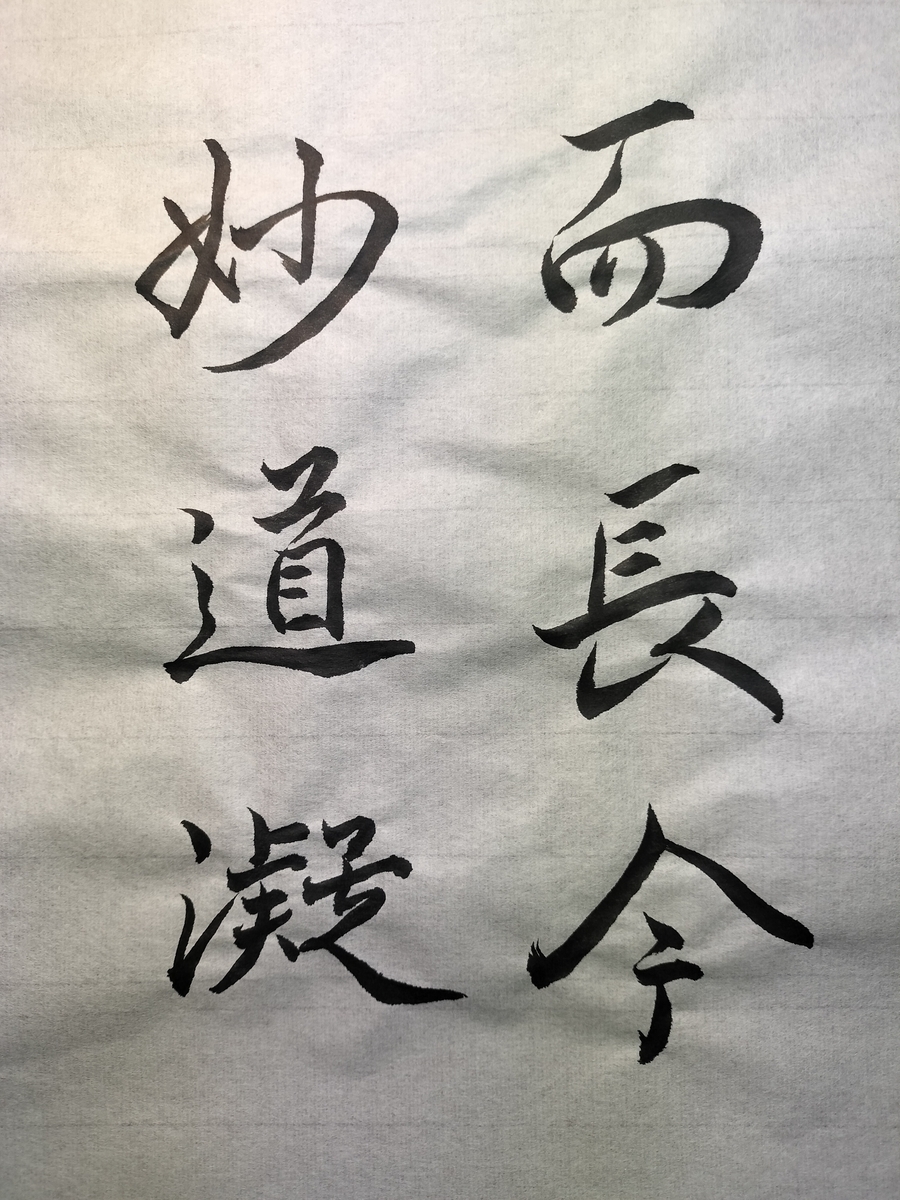 而長今
妙道凝